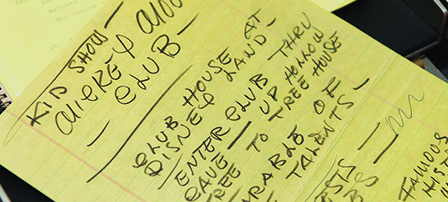 KID SHOW -
MICKEY MOU
- CLUB -
CLUB HOUSE AT
DISNEY LAND -
ENTER CLUB THRU
CAVE - UP HOLLOW
TREE TO TREE HOUSE
PARABLE OF
TALENTS -
FAMOUS